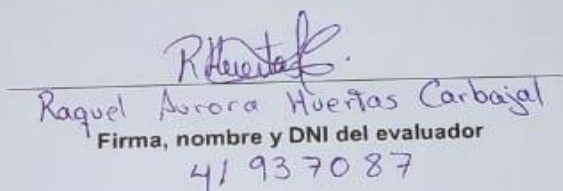 R Huertas
Raquel Aurora Huertas Carbajal
Firma, nombre y DNI del evaluador
41937087